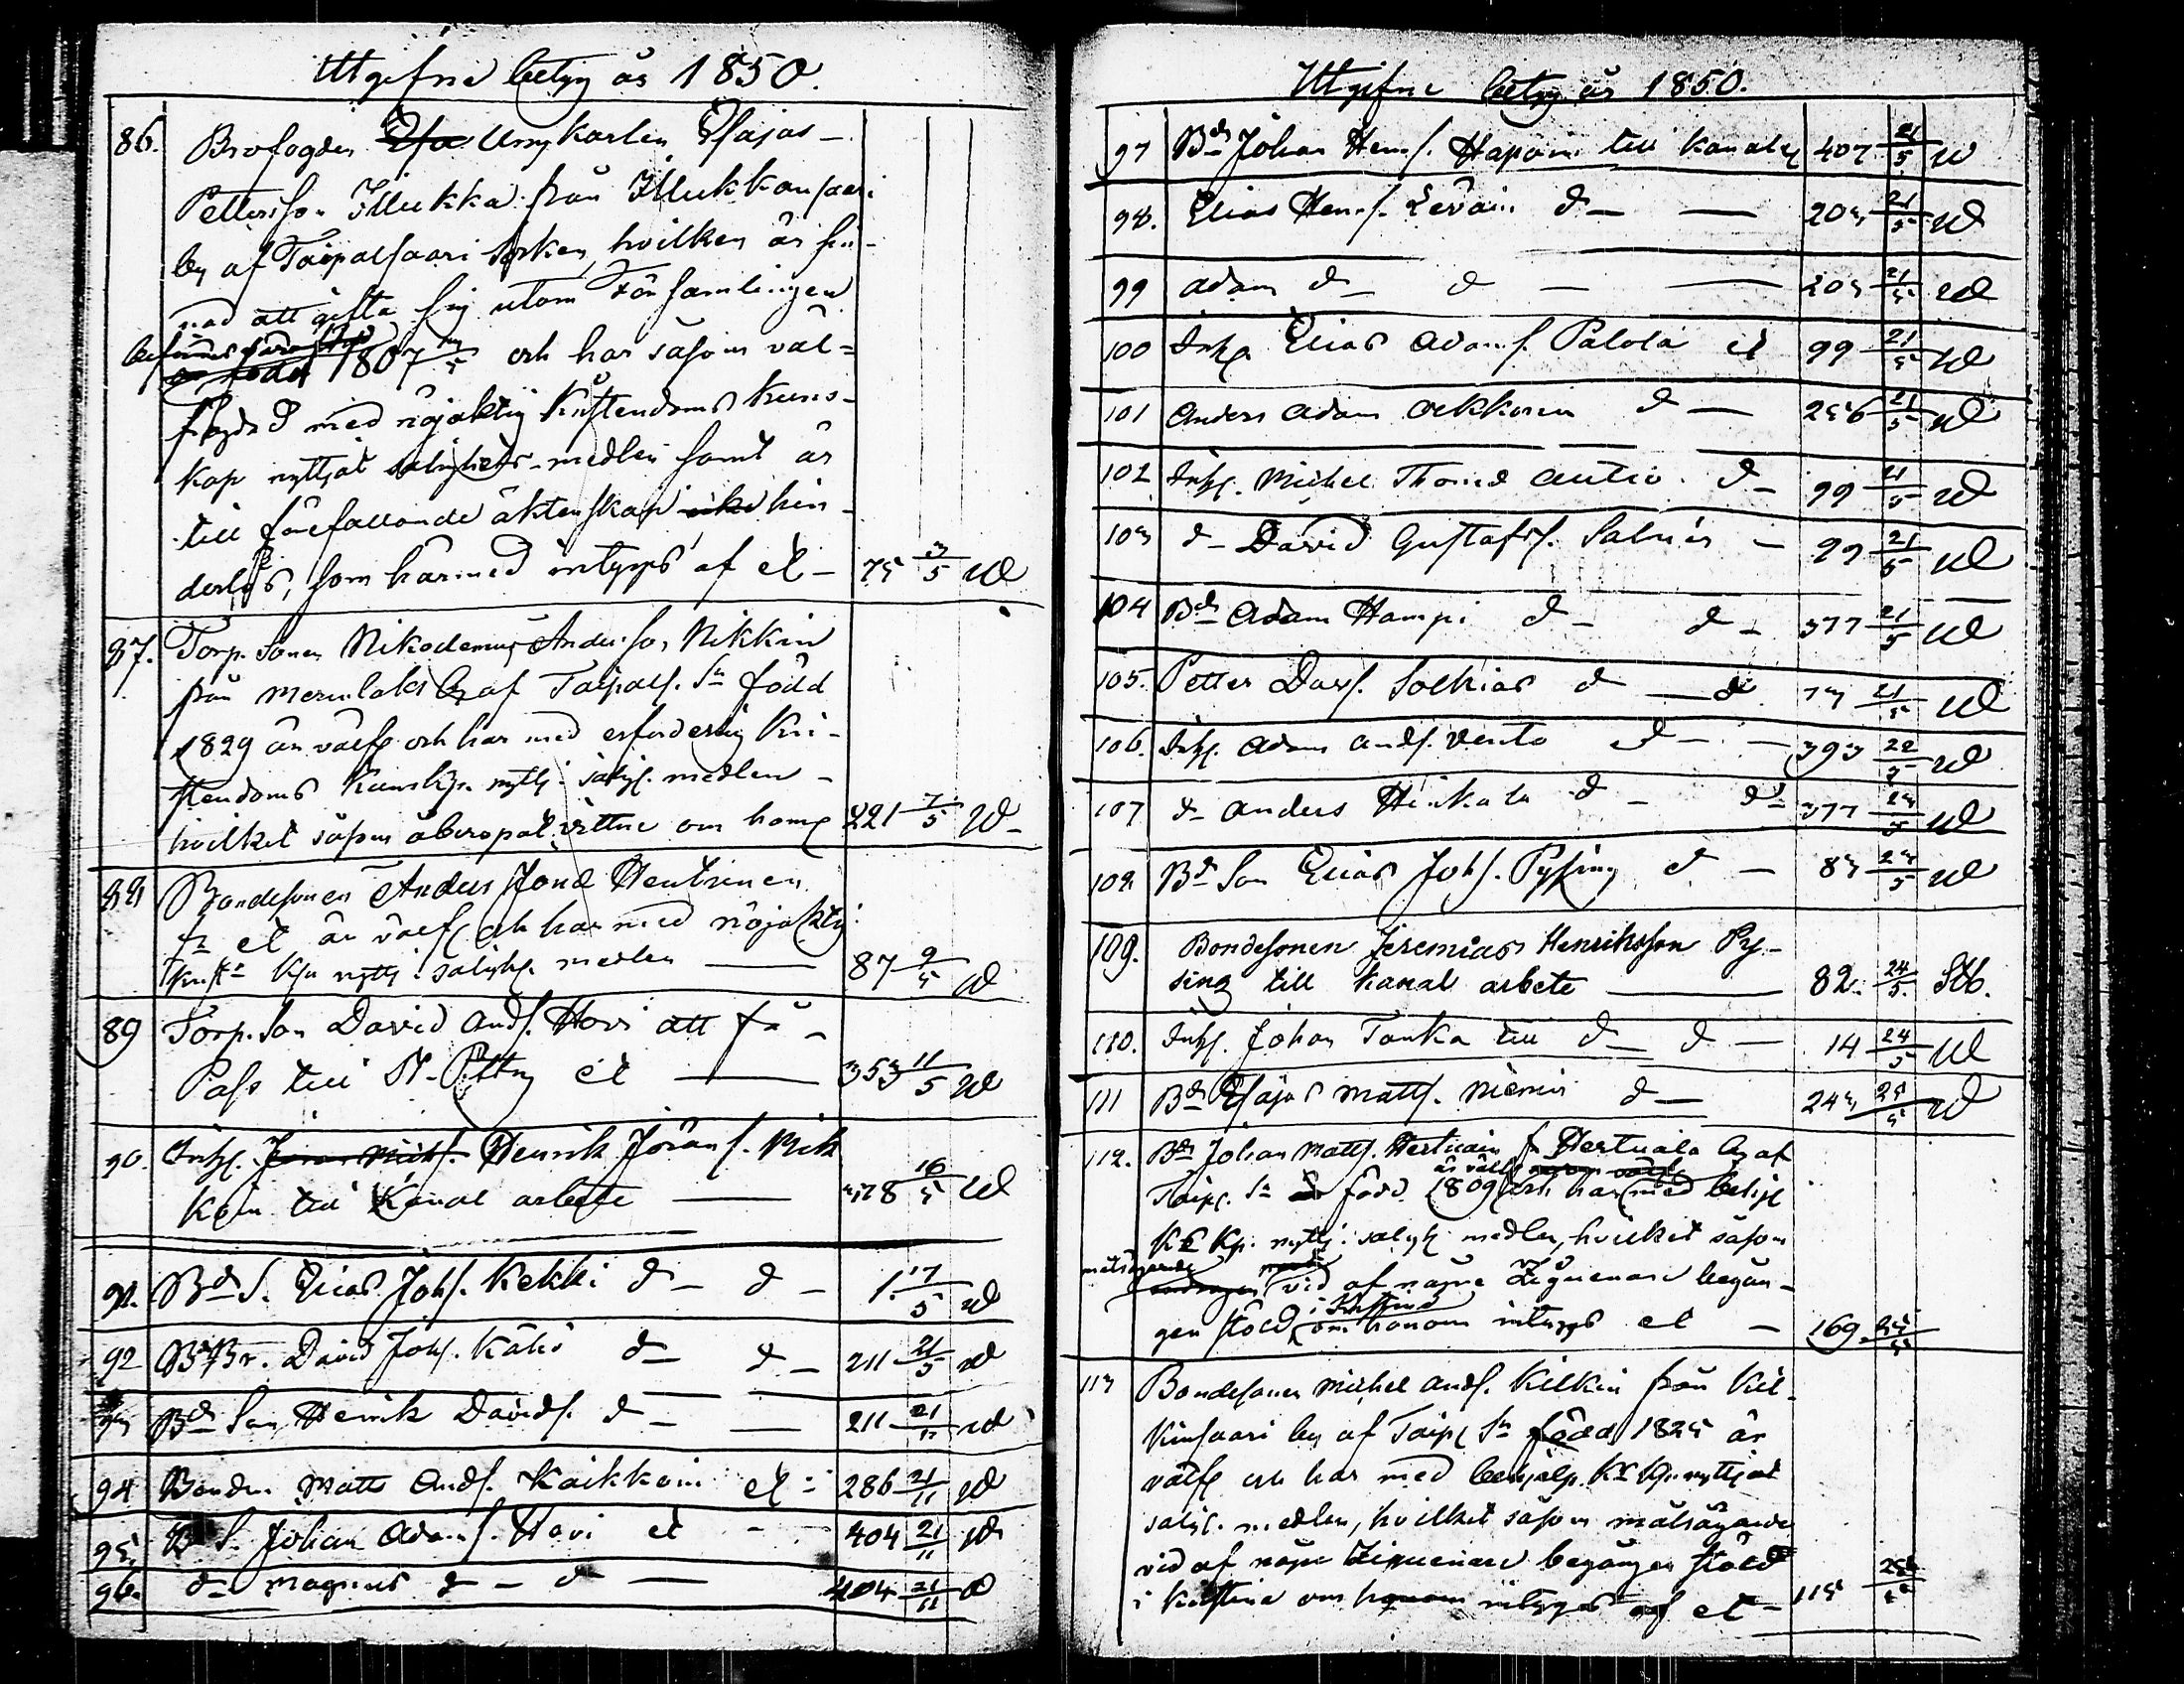 Utgifne betyg år 1850.
86. Brofogden Esa Ungkarlen Esajas
Pettersson Illukka från Illukkansaari
by af Taipalsaari Socken, hvilken är sin-
nad att gifta sig utom Församlingen
befinnes vara född
är född 1807 och har såsom väl-
frägdad med nöjaktig Kristendoms kuns-
kap nyttjat salighets-medlen samt är
till förefallande äktenskap icke hin-
derlös, som härmed intygas af et - 75 3/5 Ud
87. Torp. Sonen Nikodemus Andersson Nikkin
från Merenlaks By af Taipals. Sn född
1829 är välfr och har med erforderlig Kri-
stendoms Kunskp. nyttj. salig. medlen -
hvilket såsom åberopat vittne om honom 221 7/5 Ud
88 Bondesonen Anders Jönss Hentunen
fr et är välfr och har med nöjaktig
Krist Ksp nyttj. saligh. medlen 87 9/5 Ud
89 Torp. Son David Ands. Hovi att få
Pass till St. Pettbg et 353 11/5 Ud
90. Inhs. Jöran Mich. Henrik Jörans. Mik
koin till Kanal arbete 378 16/5 Ud
91. Bd S. Elias Johs. Kekki d d 1. 17/5 Ud
92 Bd Br. David Johs. Kähö d d 211 21/5 Ud
93 Bd Son Henrik Davids. d 211 21/5 Ud
94 Bonden Matts Ands. Kaikkoin et 286 21/5 Ud
95. B S. Johan Adams. Hovi et 404 21/5 Ud
96. d Magnus d - d 404 21/5 Ud
Utgifne betyg år 1850.
97 Bd Johan Hens. Hapoin till Kanaln 407 21/5 Ud
98. Elias Hens. Eeväin d 203 21/5 Ud
99 Adam d d 203 21/5 Ud
100 Inhs Elias Adams. Palola et 99 21/5 Ud
101 Anders Adam Ockkonen d 256 21/5 Ud
102 Inhs. Michel Thomas Autio d 99 21/5 Ud
103 d David Gustafss. Salmén 99 21/5 Ud
104 Bd Adam Hampi d d 377 21/5 Ud
105. Petter Davs. Solkias d d 73 21/5 Ud
106. Inhs. Adam Ands. Vento d 393 22/5 Ud
107 d Anders Hinkala d d 377 23/5 Ud
108 Bd Son Elias Johs. Pyssing d 83 23/5 Ud
109. Bondesonen Jeremias Henriksson Py-
sing till kanal arbete 82. 24/5
110. Inhs. Johan Tanka till d d 14 24/5 Ud
111 Bd Esajas Matts. Niemin d 243 25/5 Ud
112. Bd Johan Matts. Hertuain fr Hertuala By af
är välfr
Taips. Sn är född 1809 och har med behjl
K Kp. nyttj. saligh. medlen, hvilket såsom
målsägande
vid af någre Zigenare begån-
i Kistina
gen stöld om honom intygas et - 169 25/5
113 Bondesonen Michel Ands. Kilkin från Kil-
kinsaari by af Taips Sn född 1825 är
välfr och har med behjälp. K Kp. nyttjat
salig. medlen, hvilket såsom målsägande
vid af någre Zigenare begången stöld
i Kistina om honom intygas af et - 115 25/5